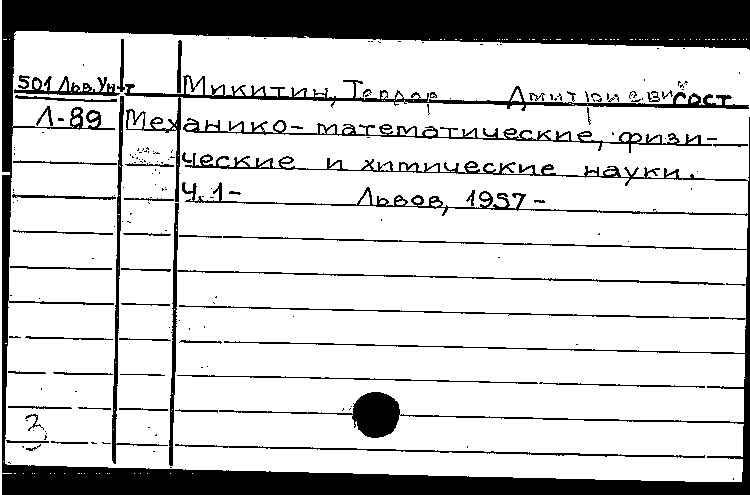 501 Льв. Ун-т Микитин, Теодор Дмитриевич сост
Л-89 Механико-математические, физи-
ческие и химические науки.
Ч.1- Львов, 1957-
3